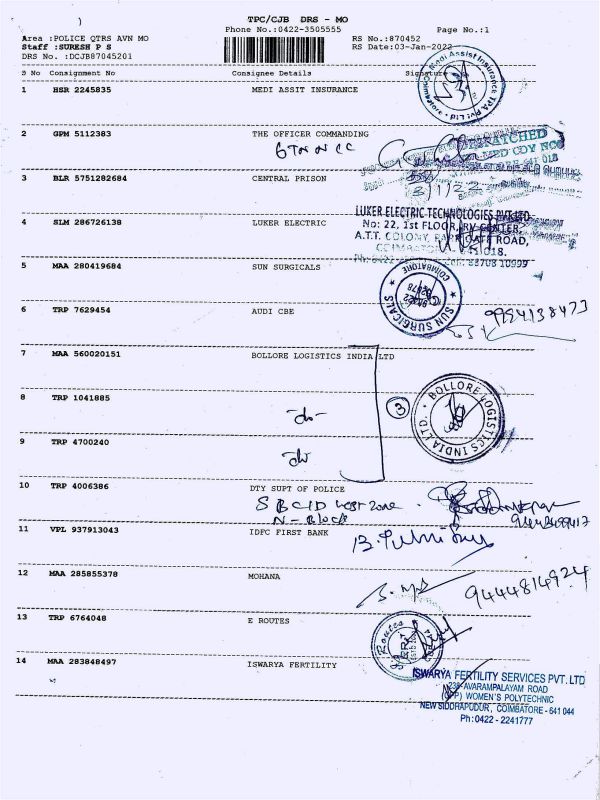 TPC/CJB DRS - MO
Phone No.:0422-3505555
Page No.:1
Area :POLICE QTRS AVN MO
RS No.:870452
Staff :SURESH P S
RS Date:03-Jan-2022
DRS No. :DCJB87045201
S No Consignment No Consignee Details Signature
1 HSR 2245835 MEDI ASSIT INSURANCE
Medi Assist Insurance TPA Pvt Ltd
Coimbatore
2 GPM 5112383 THE OFFICER COMMANDING
6 TN N CC
DESPATCHED
3 BLR 5751282684 CENTRAL PRISON
3/1/22
4 SLM 286726138 LUKER ELECTRIC
LUKER ELECTRIC TECHNOLOGIES PVT LTD
No: 22, 1st FLOOR, RV CENTER,
A.T.T. COLONY, ROAD,
5 MAA 280419684 SUN SURGICALS
SUN SURGICALS
COIMBATORE
6 TRP 7629454 AUDI CBE
9994138473
7 MAA 560020151 BOLLORE LOGISTICS INDIA LTD
8 TRP 1041885
-do-
3
BOLLORE LOGISTICS INDIA LTD.
9 TRP 4700240
do
10 TRP 4006386 DTY SUPT OF POLICE
S BCID West Zone
N-Block
11 VPL 937913043 IDFC FIRST BANK
12 MAA 285855378 MOHANA
9444814924
13 TRP 6764048 E ROUTES
Routes
14 MAA 283848497 ISWARYA FERTILITY
ISWARYA FERTILITY SERVICES PVT. LTD
AVARAMPALAYAM ROAD
(OPP) WOMEN'S POLYTECHNIC
NEW SIDDHAPUDUR, COIMBATORE - 641 044
Ph:0422 - 2241777